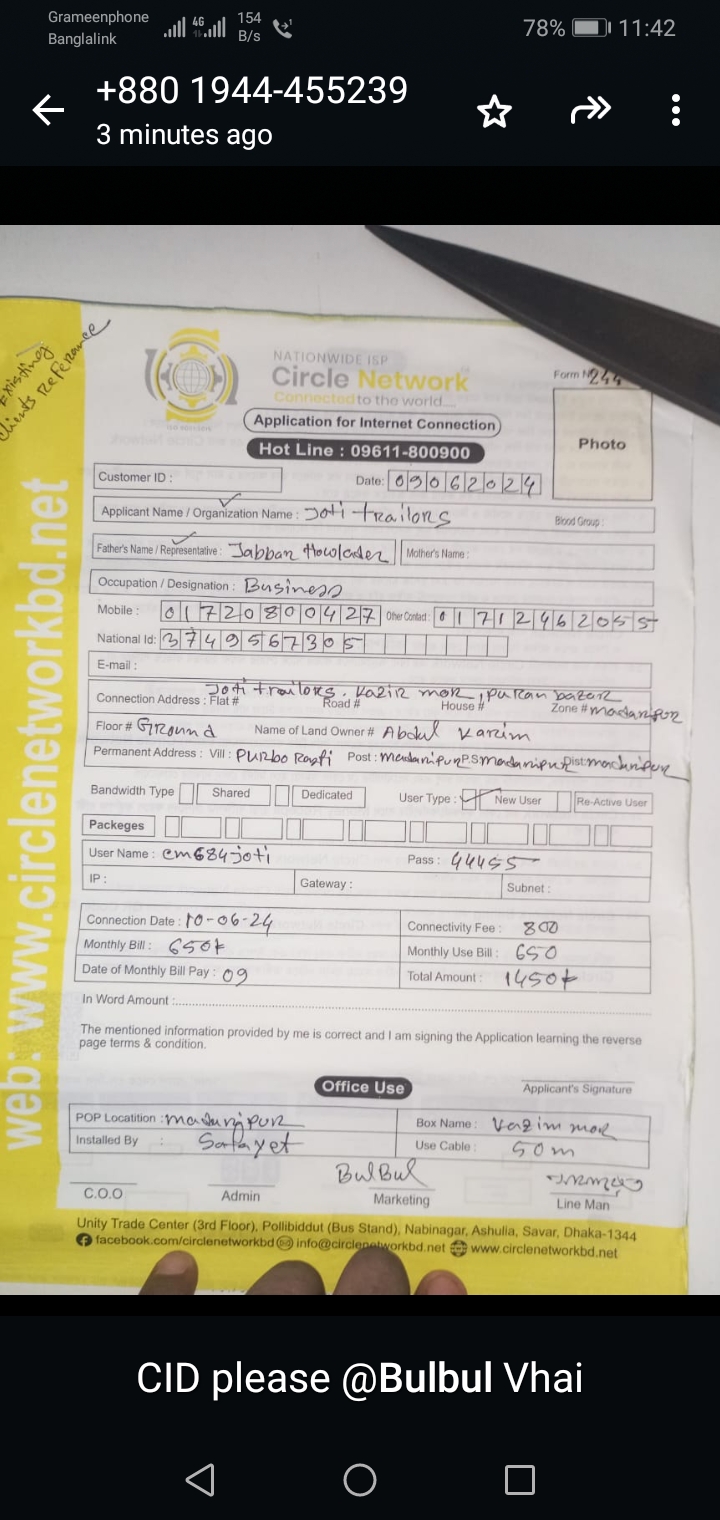 Grameenphone
Banglalink
4G
154 B/s
78%
11:42
+880 1944-455239
3 minutes ago
Existing
Clients Referance
NATIONWIDE ISP
Circle Network
Connected to the world....
Form No 244
Application for Internet Connection
Photo
Hot Line : 09611-800900
Customer ID :
Date: 09062024
Applicant Name / Organization Name : Joti trailors
Blood Group :
Father's Name / Representative : Jabbar Howlader
Mother's Name :
Occupation / Designation : Business
Mobile : 01720800427
Other Contact : 01712462055
National Id: 3749567305
E-mail :
Joti trailors. Kazir mor, puran bazar
Connection Address : Flat # Road # House # Zone # madaripur
Floor # Ground Name of Land Owner # Abdul Karim
Permanent Address : Vill : Purbo Post : madaripur P.S madaripur Dist: madaripur
Bandwidth Type Shared Dedicated User Type : New User Re-Active User
Packeges
User Name : cm684joti Pass : 44455
IP : Gateway : Subnet :
Connection Date : 10-06-24 Connectivity Fee : 800
Monthly Bill : 650t Monthly Use Bill : 650
Date of Monthly Bill Pay : 09 Total Amount : 1450t
In Word Amount :
The mentioned information provided by me is correct and I am signing the Application learning the reverse
page terms & condition.
Office Use
Applicant's Signature
POP Locatition : madaripur Box Name : Kazim mor
Installed By : Safayet Use Cable : 50m
BulBul
C.O.O Admin Marketing Line Man
Unity Trade Center (3rd Floor), Pollibiddut (Bus Stand), Nabinagar, Ashulia, Savar, Dhaka-1344
facebook.com/circlenetworkbd info@circlenetworkbd.net www.circlenetworkbd.net
web: www.circlenetworkbd.net
CID please @Bulbul Vhai